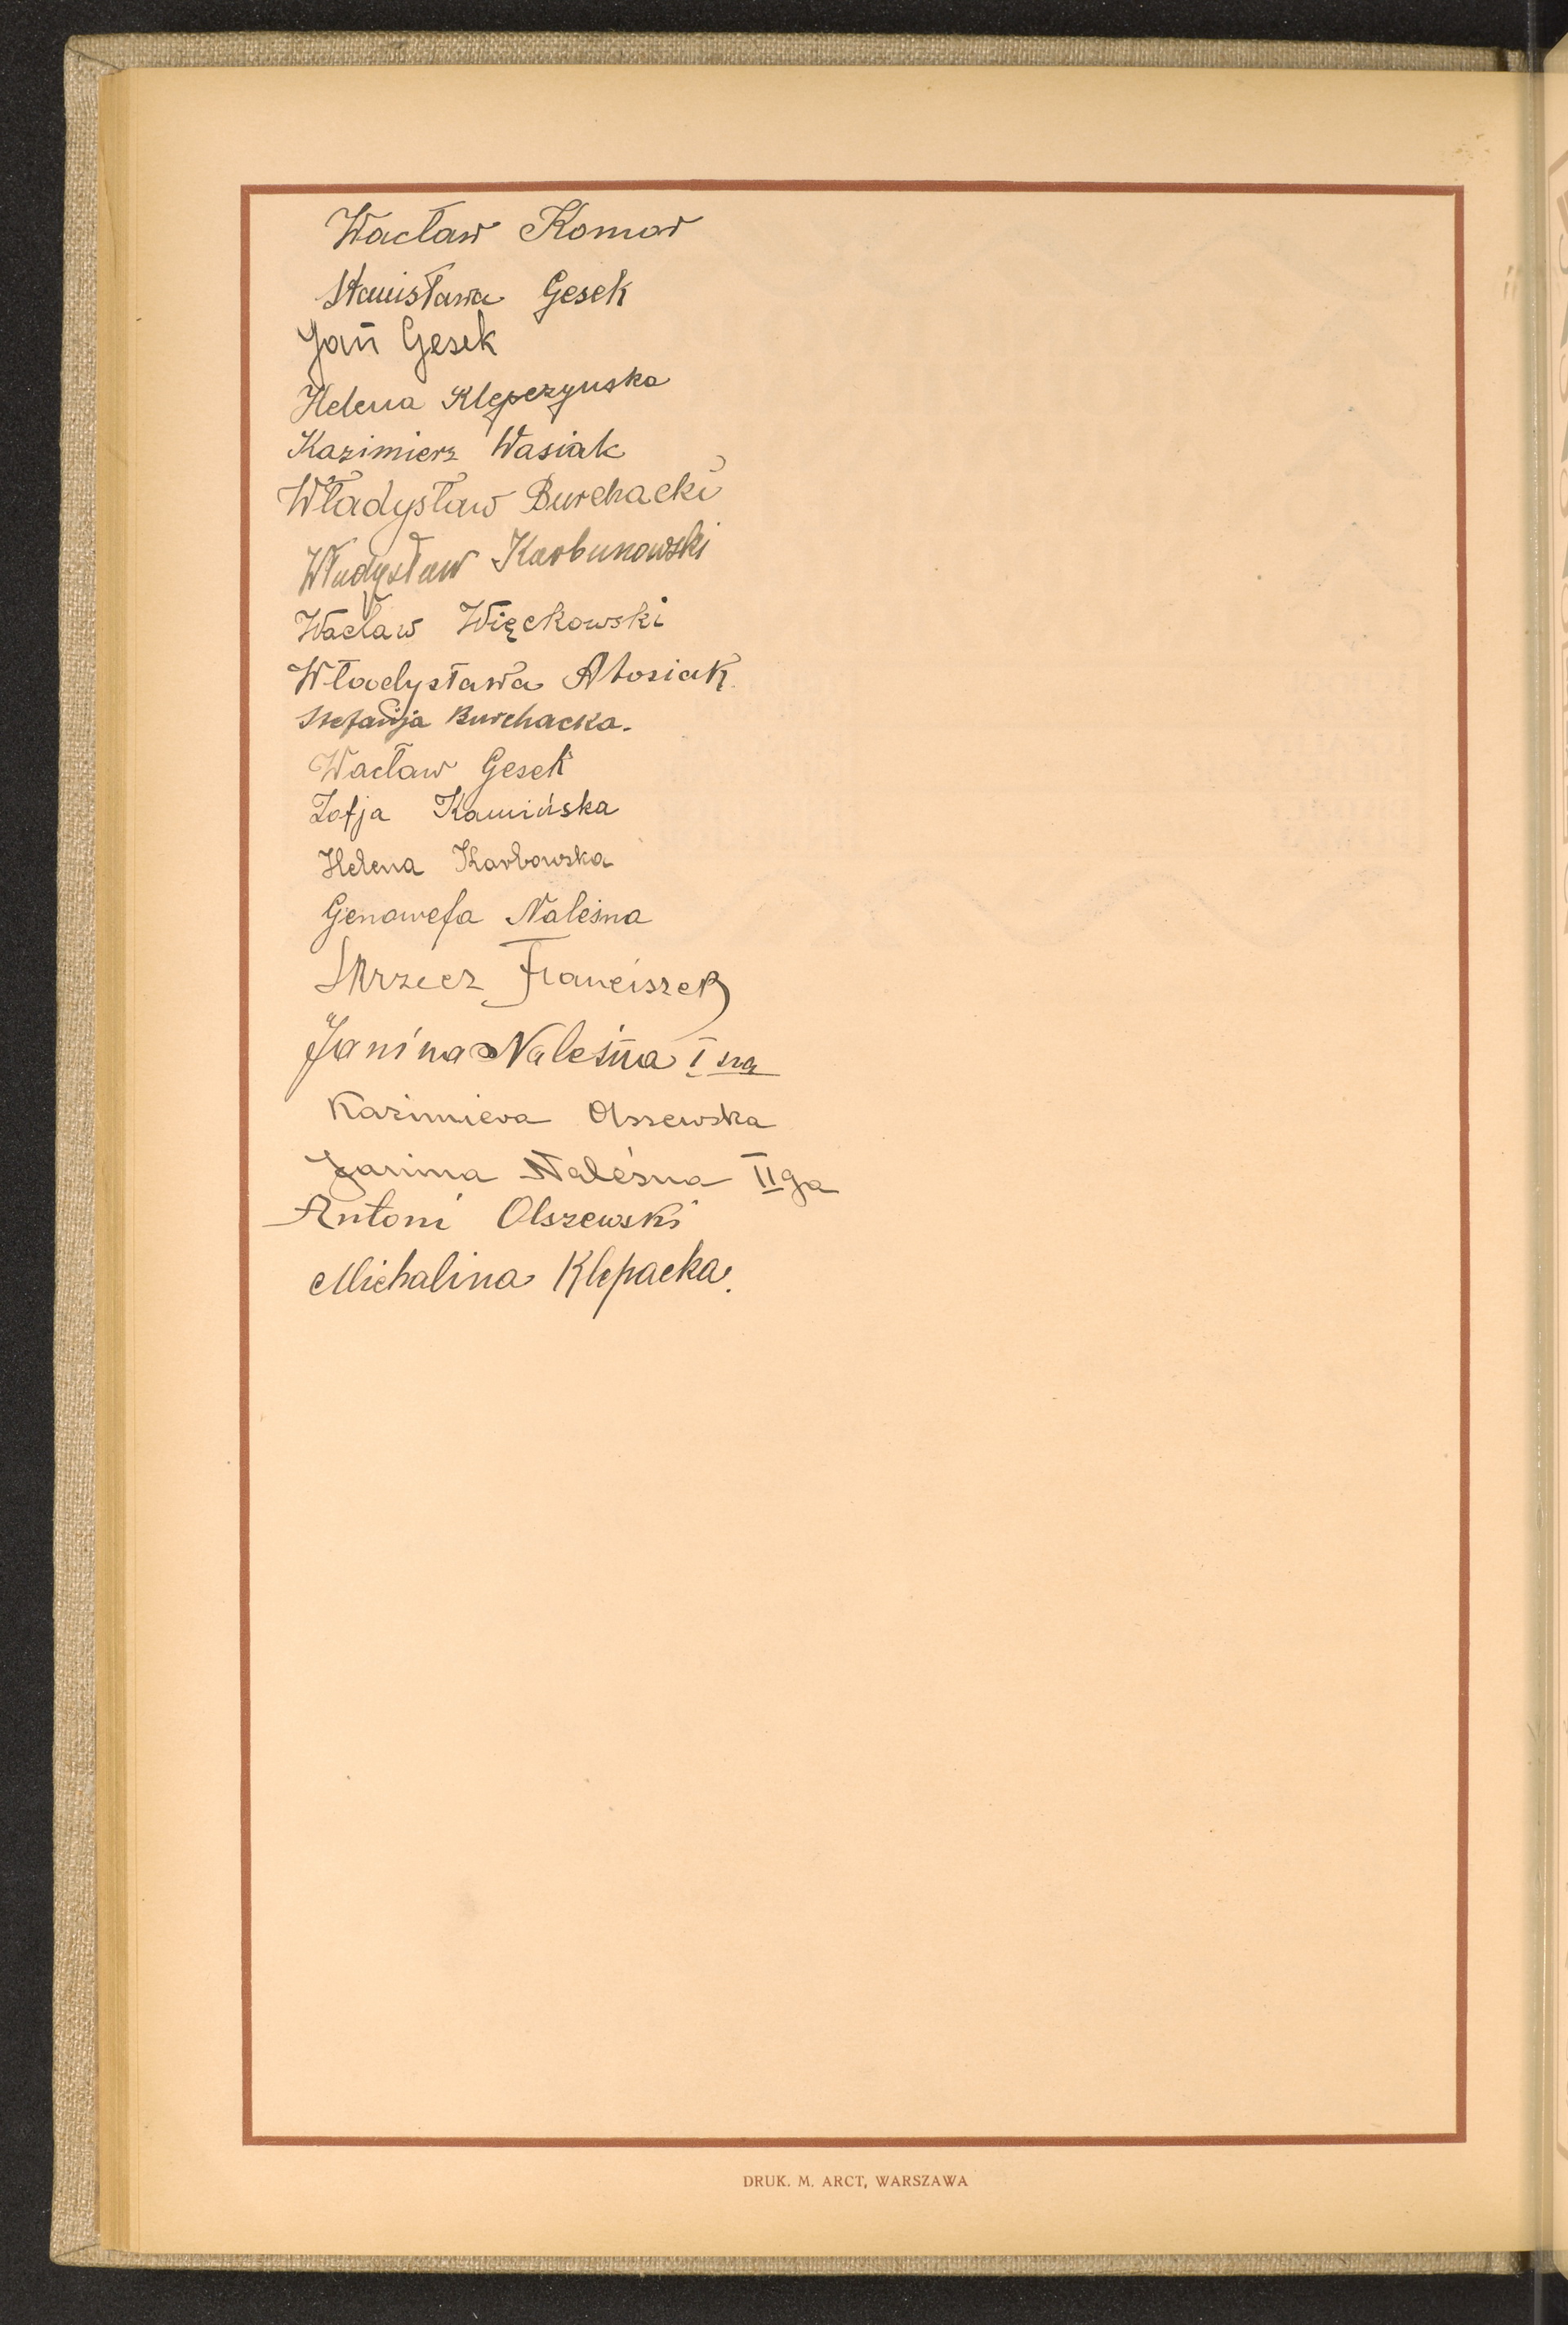 Wacław Komar
Stanisława Gesek
Jan Gesek
Helena Klepczynska
Kazimierz Wasiak
Władysław Burchacki
Władysław Karbunowski
Wacław Więckowski
Władysława
Stefanja Burchacka.
Wacław Gesek
Zofja Kamińska
Helena Karbowska
Genowefa Naleśna
Franciszek
Janina Naleśna I sza
Kazimiera Olszewska
Janina Naleśna II ga
Antoni Olszewski
Michalina Klepacka.
DRUK. M. ARCT, WARSZAWA